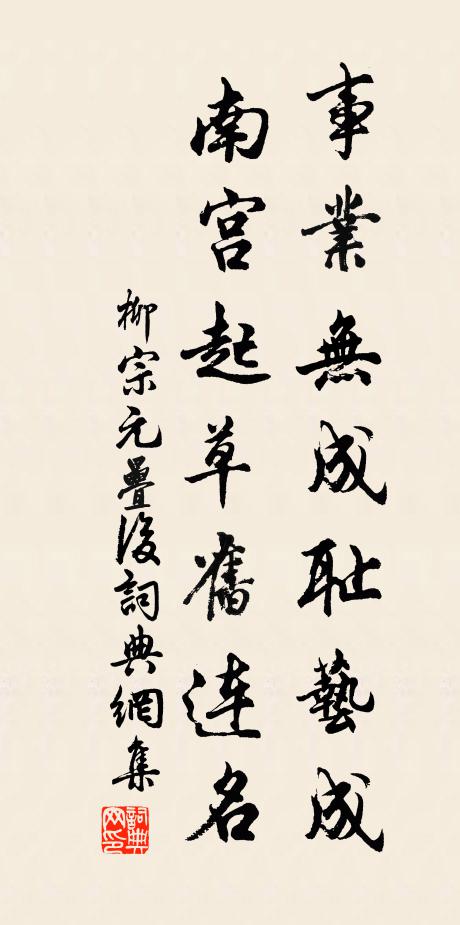 事業無成耻藝成
南宫起草舊連名
柳宗元疊後詞典網集
詞典網印